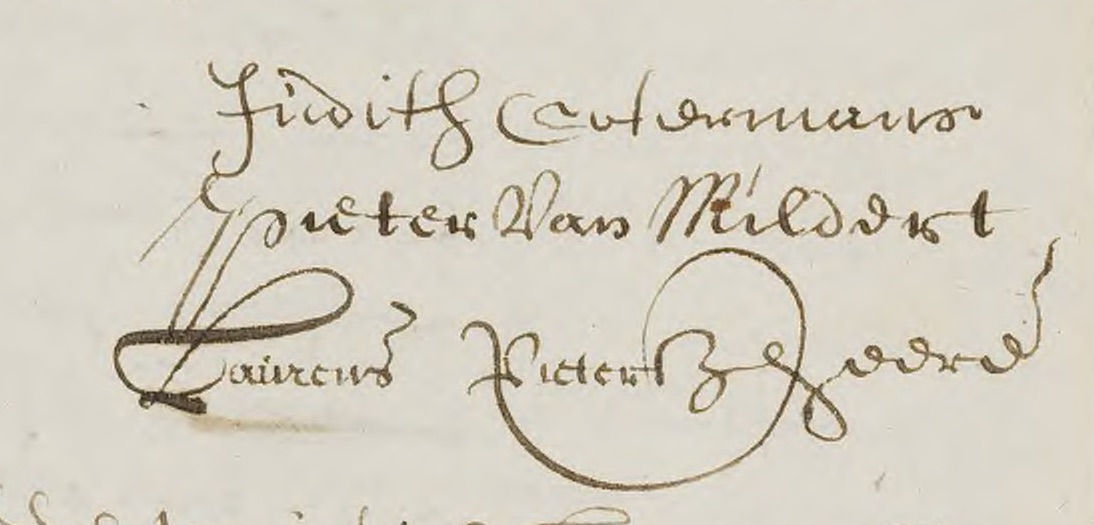 Judith Cotermans
Pieter Van Mildert
Laurens Pieters